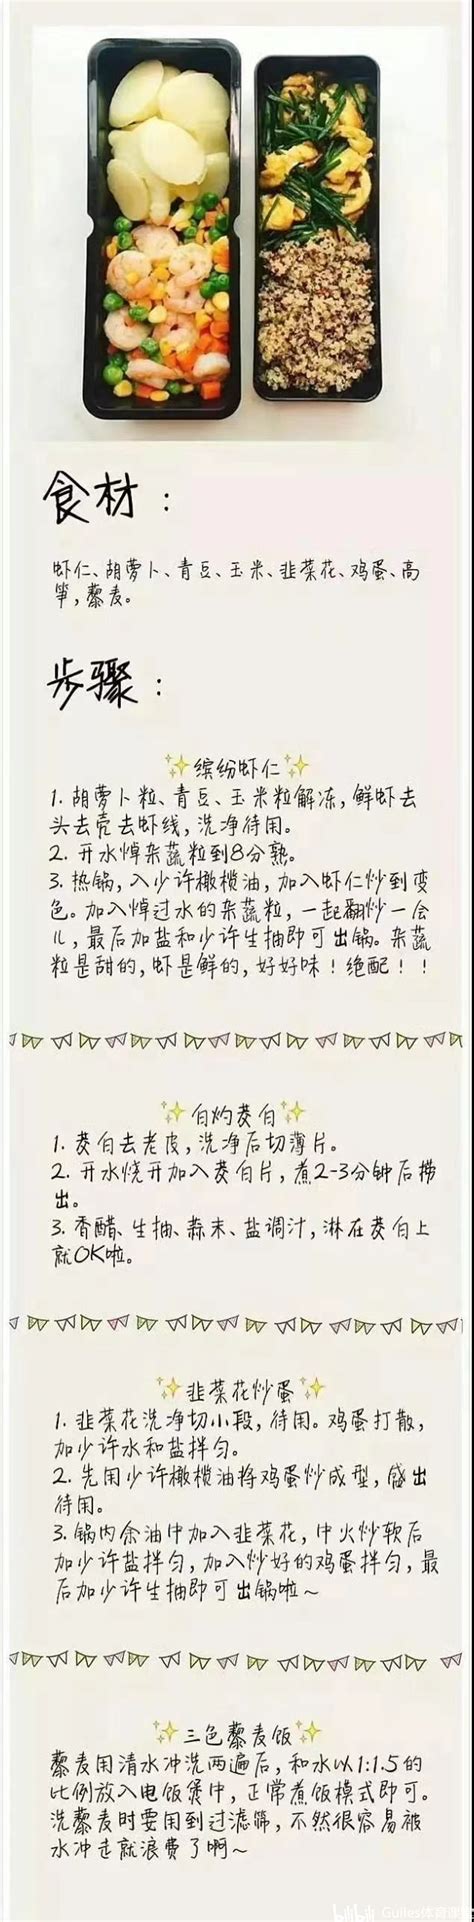 食材：
虾仁、胡萝卜、青豆、玉米、韭菜花、鸡蛋、高
笋，藜麦。
步骤：
缤纷虾仁
1. 胡萝卜粒、青豆、玉米粒解冻，鲜虾去
头去壳去虾线，洗净待用。
2. 开水焯杂蔬粒到8分熟。
3. 热锅，入少许橄榄油，加入虾仁炒到变
色。加入焯过水的杂蔬粒，一起翻炒一会
儿，最后加盐和少许生抽即可出锅。杂蔬
粒是甜的，虾是鲜的，好好味！绝配！！
白灼茭白
1. 茭白去老皮，洗净后切薄片。
2. 开水烧开加入茭白片，煮2-3分钟后捞
出。
3. 香醋、生抽、蒜末、盐调汁，淋在茭白上
就OK啦。
韭菜花炒蛋
1. 韭菜花洗净切小段，待用。鸡蛋打散，
加少许水和盐拌匀。
2. 先用少许橄榄油将鸡蛋炒成型，盛出
待用。
3. 锅内余油中加入韭菜花，中火炒软后
加少许盐拌匀，加入炒好的鸡蛋拌匀，最
后加少许生抽即可出锅啦～
三色藜麦饭
藜麦用清水冲洗两遍后，和水以1:1.5的
比例放入电饭煲中，正常煮饭模式即可。
洗藜麦时要用到过滤筛，不然很容易被
水冲走就浪费了啊～
bilibili